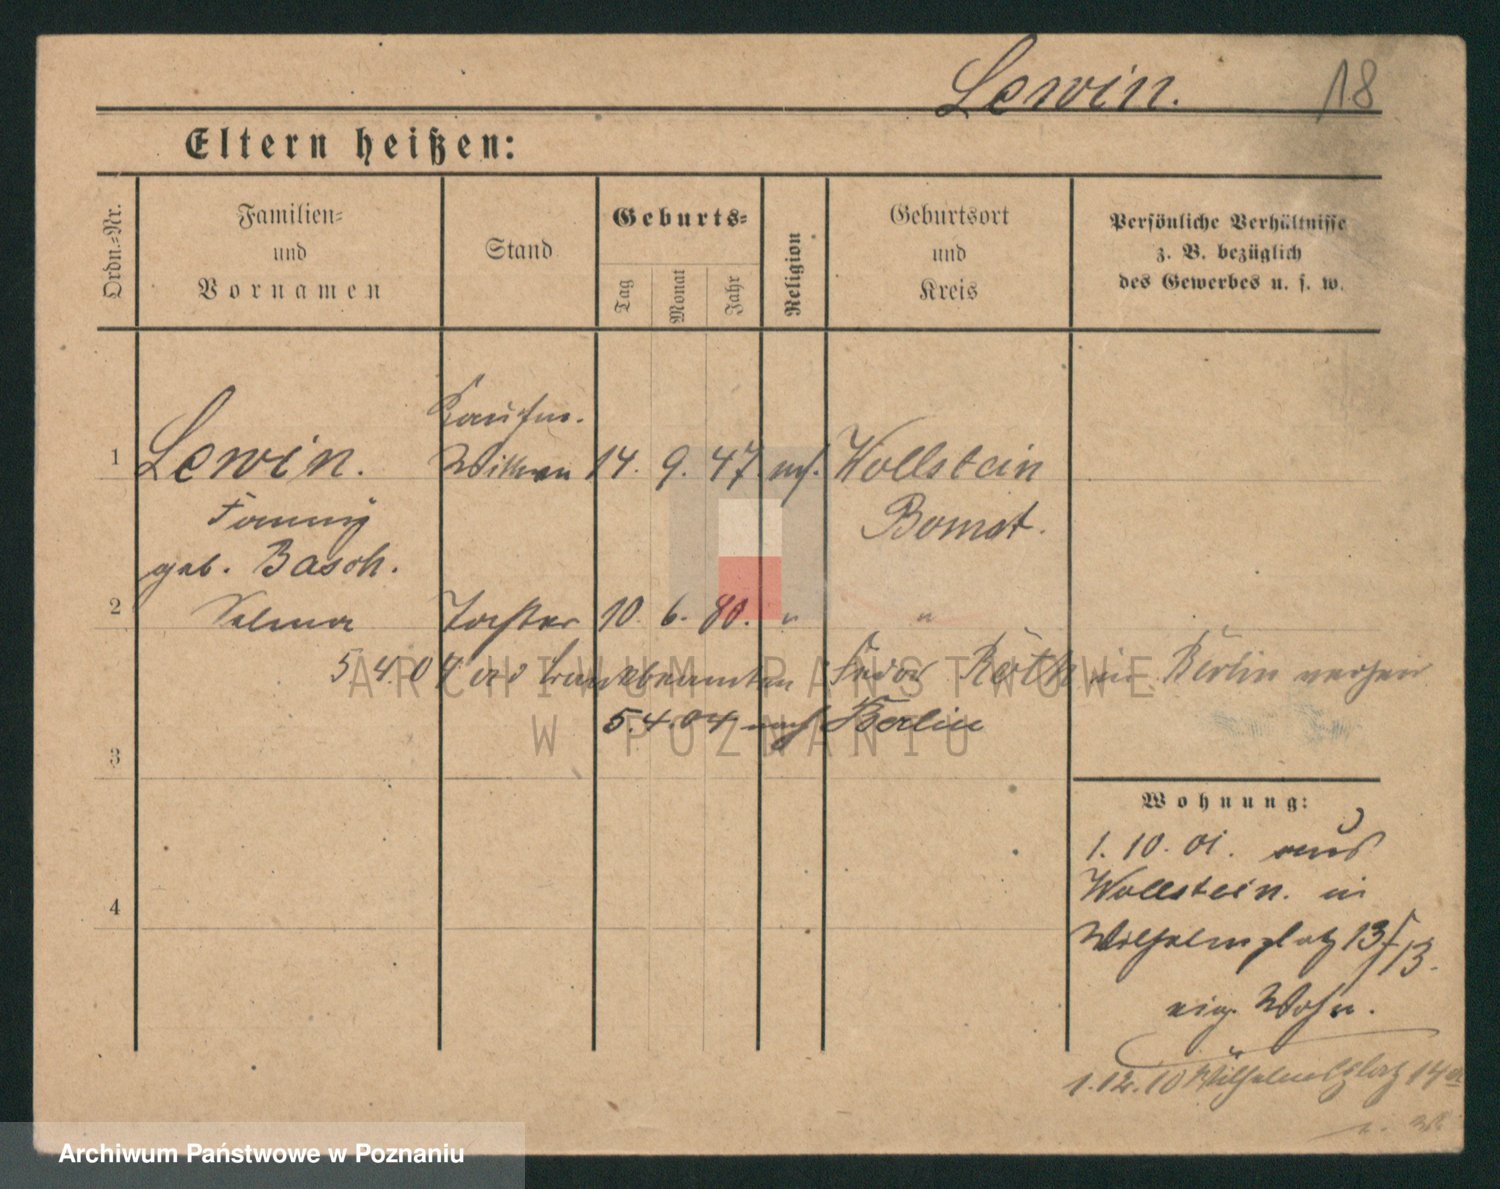 Lewin. 18
Eltern heißen:
Ordn.-Nr.
Familien-
und
Vornamen
Stand
Geburts-
Tag
Monat
Jahr
Religion
Geburtsort
und
Kreis
Persönliche Verhältnisse
z. B. bezüglich
des Gewerbes u. s. w.
Kaufm.
1 Lewin. Wittwe 14. 9. 47. mos. Wollstein
Fanny Bomst.
geb. Basch.
2 Selma Tochter 10. 6. 80. " "
5.4.04 Bankbeamten Roth in Berlin
5.4.04 nach Berlin
3
Wohnung:
1. 10. 01. aus
Wollstein. in
4
Wilhelmplatz 13/13.
eig. Wohn.
1.12.10 Wilhelmsplatz 14
ARCHIWUM PAŃSTWOWE
W POZNANIU
Archiwum Państwowe w Poznaniu